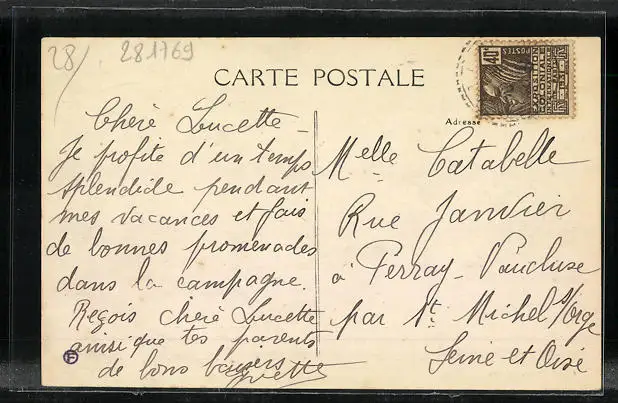 28/ 281769
CARTE POSTALE
40c
POSTES
Adresse
Chère Lucette -
Je profite d'un temps
splendide pendant
mes vacances et fais
de bonnes promenades
dans la campagne.
Reçois chère Lucette
ainsi que tes parents
de bons baisers
Yvette
Melle Catabelle
Rue Janvier
à Perray-Vaucluse
par St. Michel s/Orge
Seine et Oise